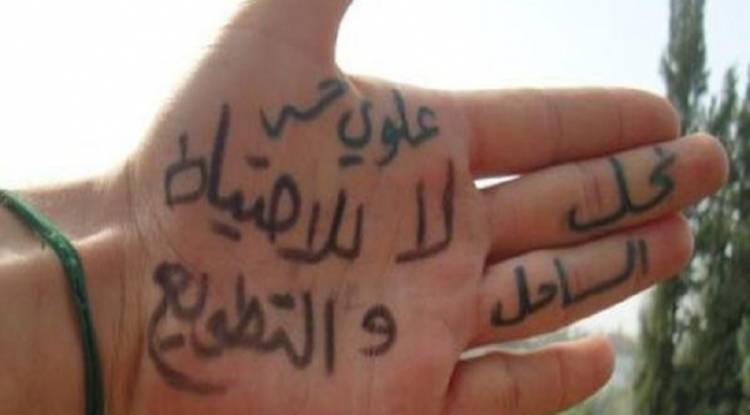 علوي حر
لا للاحتياط
والتطويع
نحك
الساحل